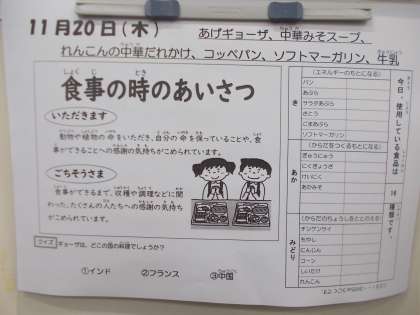 11月20日(木)
あげギョーザ、中華みそスープ、
れんこんの中華だれかけ、コッペパン、ソフトマーガリン、牛乳
食事の時のあいさつ
しょくじ
とき
いただきます
動物や植物の命をいただき、自分の命を保っていることや、食
事ができることへの感謝の気持ちがこめられています。
ごちそうさま
食事ができるまで、収穫や調理などに関
わった、たくさんの人たちへの感謝の気持ち
がこめられています。
クイズ
ギョーザは、どこの国の料理でしょうか?
①インド ②フランス ③中国
今日、使用している食品は
18
種類です。
き
(エネルギーのもとになる)
パン
あぶら
サラダあぶら
さとう
ごまあぶら
ソフトマーガリン
あか
(からだをつくるもとになる)
ぎゅうにゅう
にくぎょうざ
ぶたにく
あかみそ
みどり
(からだのちょうしをととのえる)
チンゲンサイ
もやし
にんじん
コーン
しいたけ
れんこん